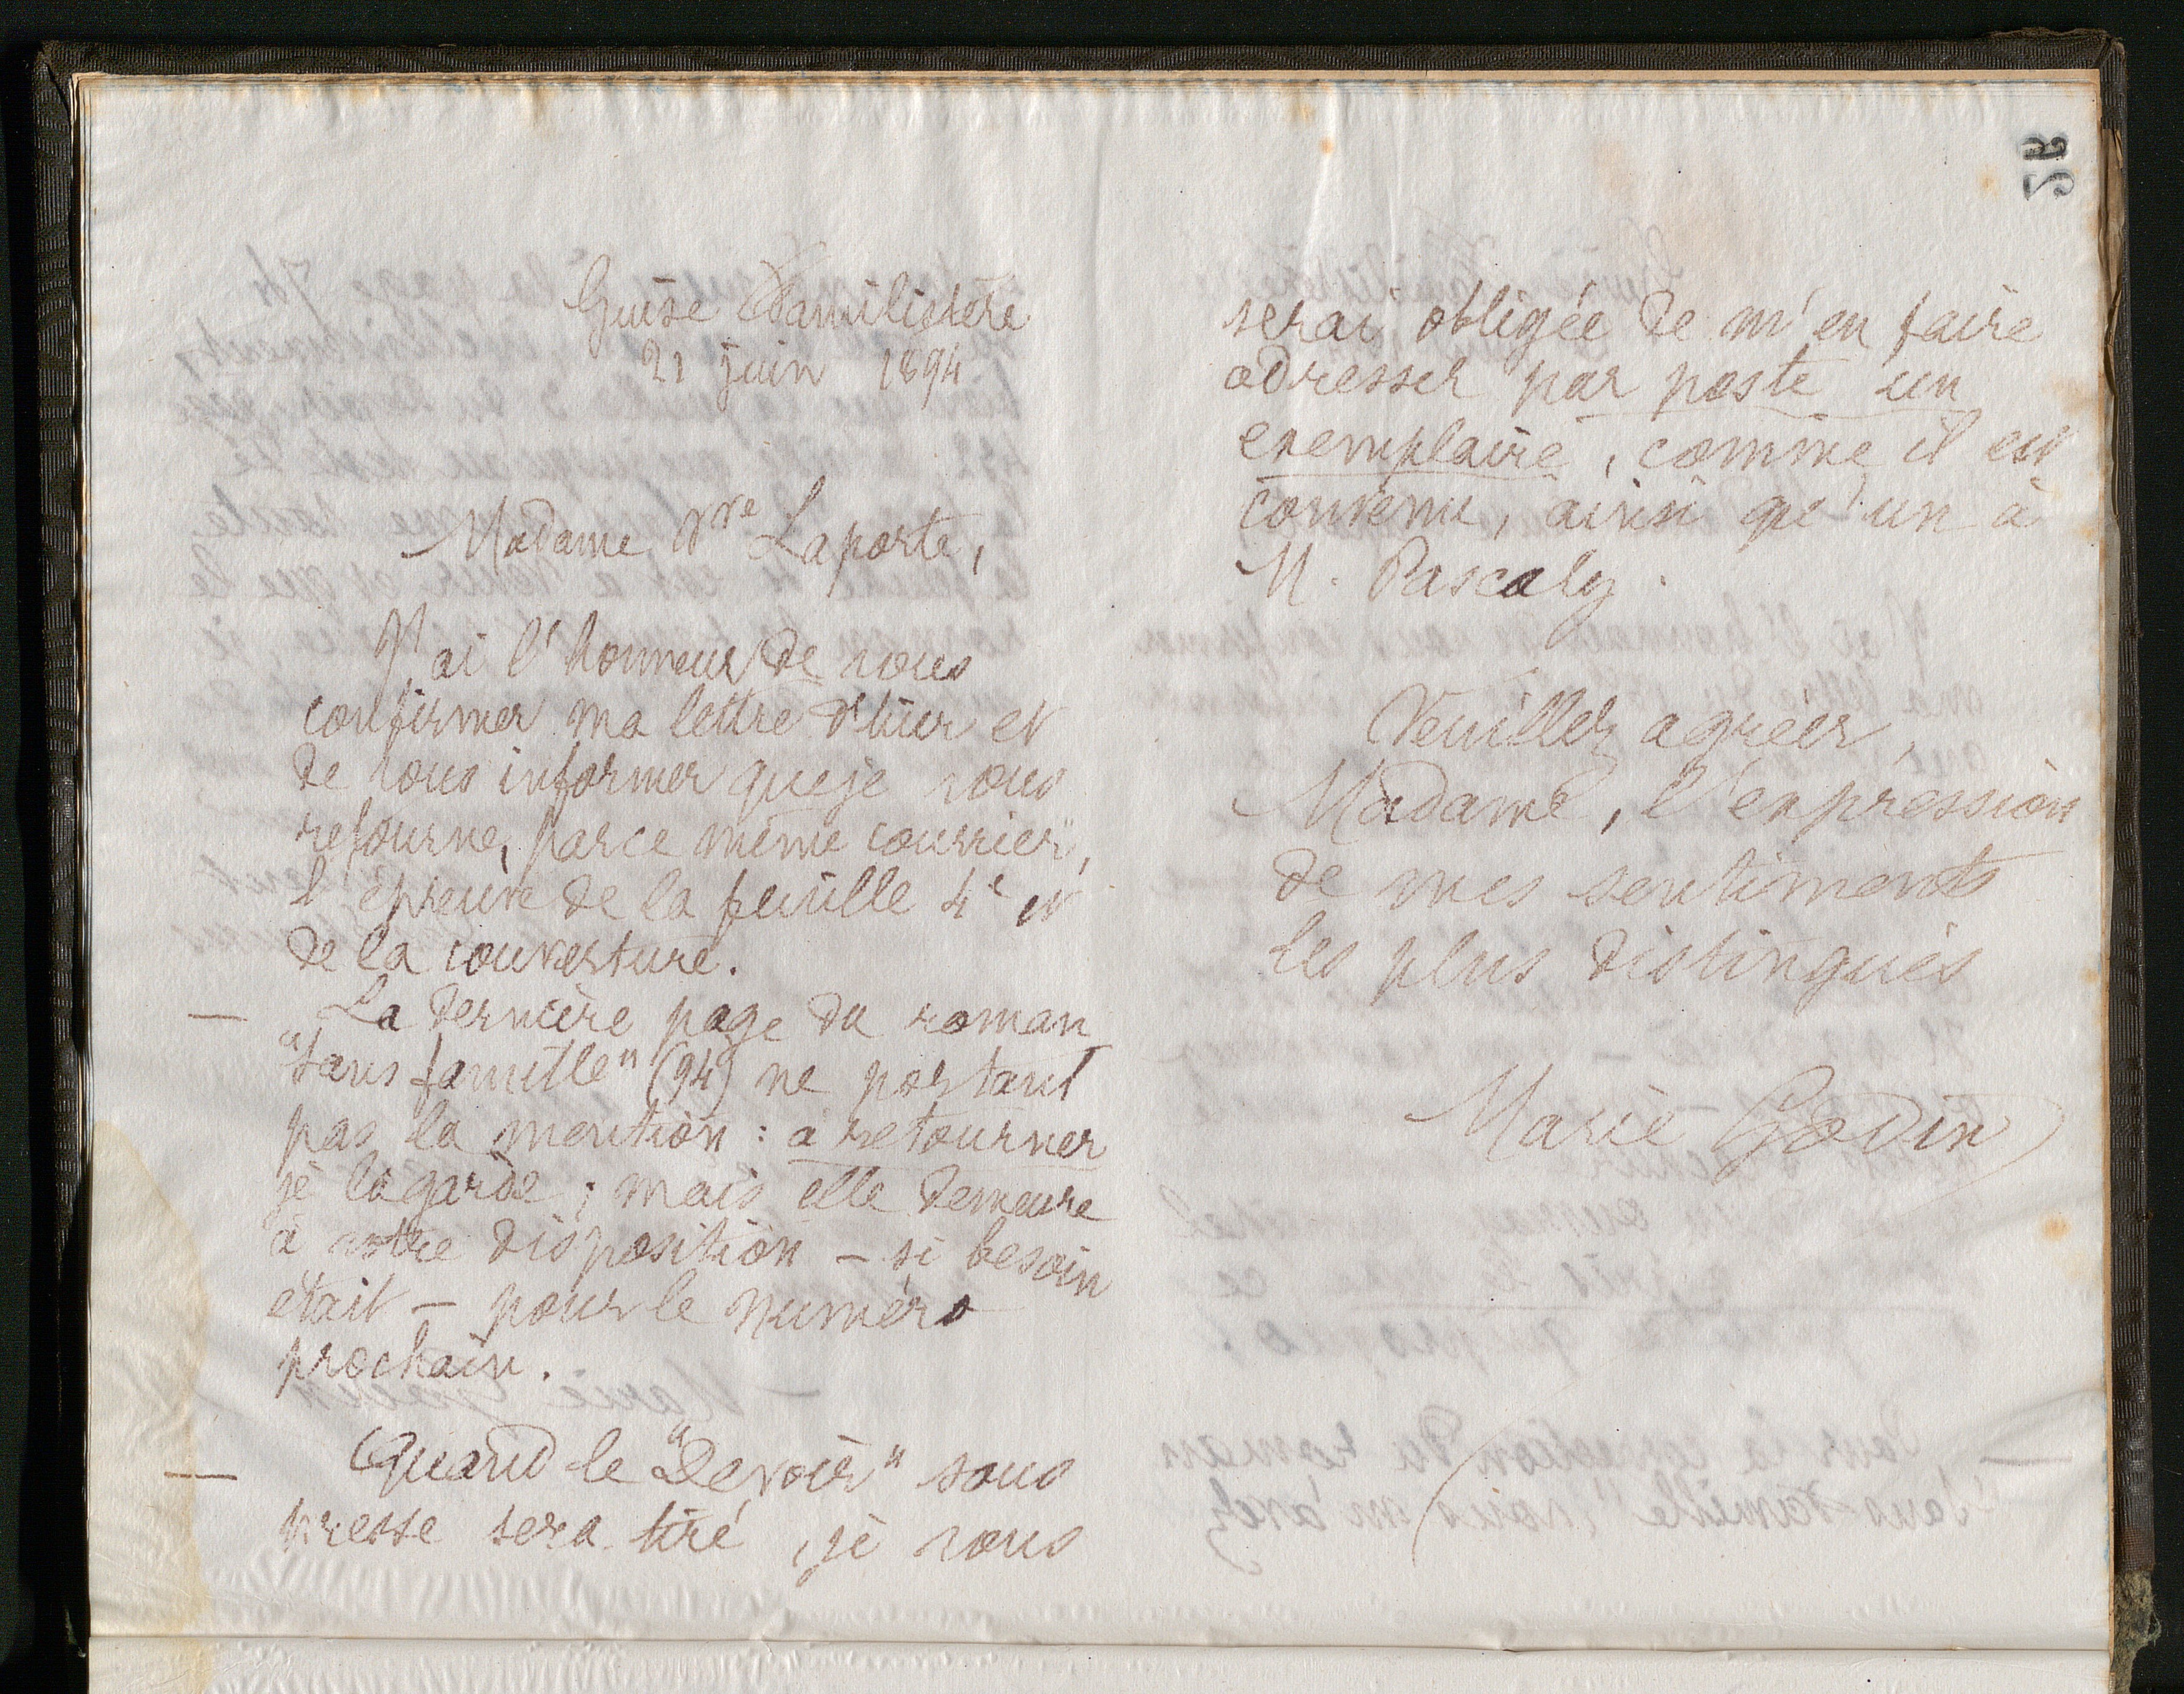 Guise Familistère
21 juin 1894
Madame Vve Laporte,
J'ai l'honneur de vous
confirmer ma lettre d'hier et
de vous informer que je vous
retourne, par ce même courrier,
l'épreuve de la feuille 4e et
de la couverture.
— La dernière page du roman
"Sans famille" (94) ne portant
pas la mention : à retourner
je la garde ; mais elle demeure
à votre disposition – si besoin
était – pour le numéro
prochain.
— Quand le "Devoir" sous
presse sera tiré, je vous
serai obligée de m'en faire
adresser par poste un
exemplaire, comme il est
convenu, ainsi qu'un à
M. Pascaly.
Veuillez agréer,
Madame, l'expression
de mes sentiments
les plus distingués
Marie Godin